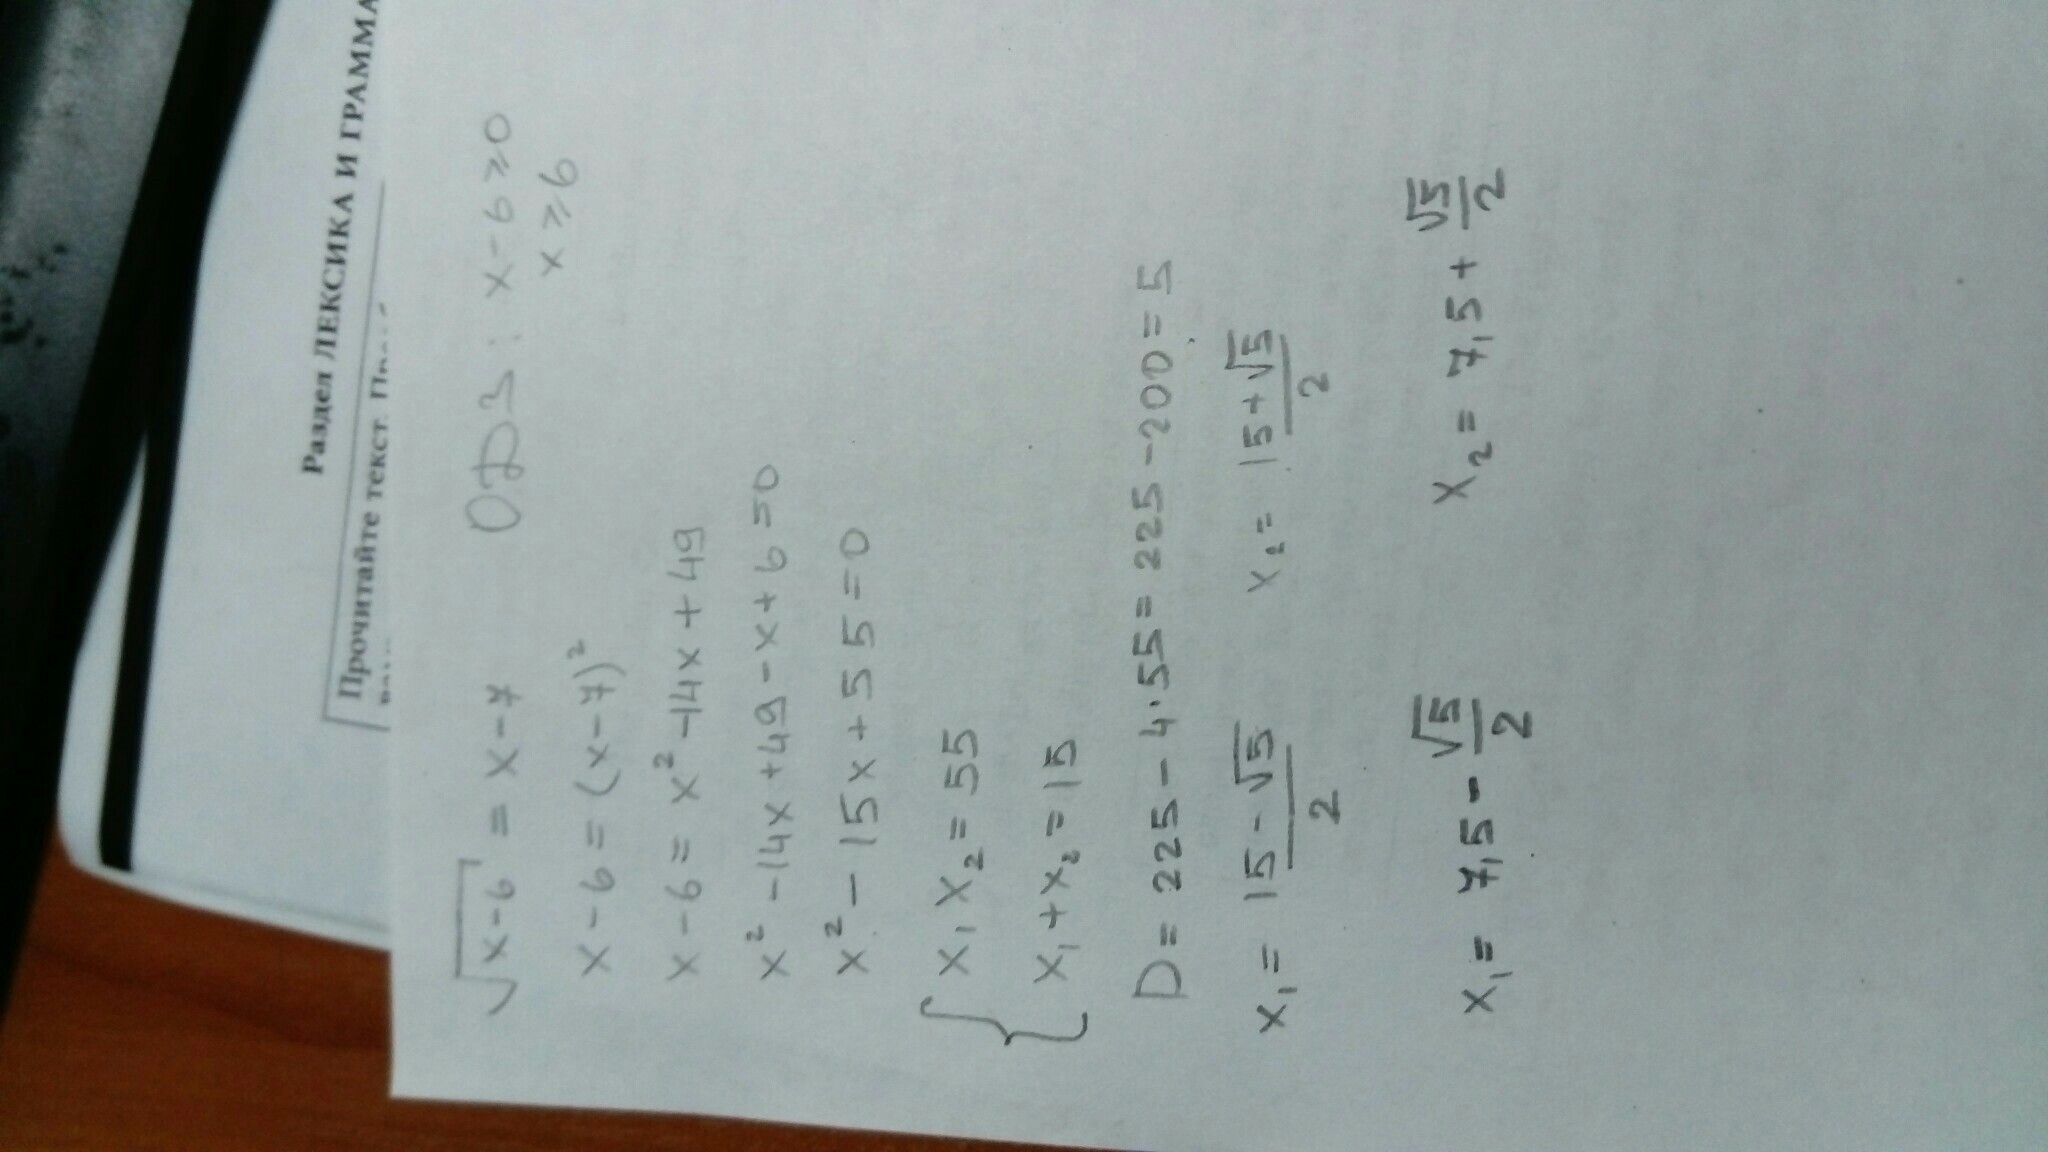 Раздел ЛЕКСИКА И ГРАММА
Прочитайте текст.
√x-6 = x-7 ОДЗ: x-6≥0
x≥6
x-6=(x-7)²
x-6=x²-14x+49
x²-14x+49-x+6=0
x²-15x+55=0
{ x₁x₂=55
x₁+x₂=15
D=225-4·55=225-200=5
x₁= (15-√5)/2 x₂= (15+√5)/2
x₁= 7,5-√5/2 x₂= 7,5+√5/2